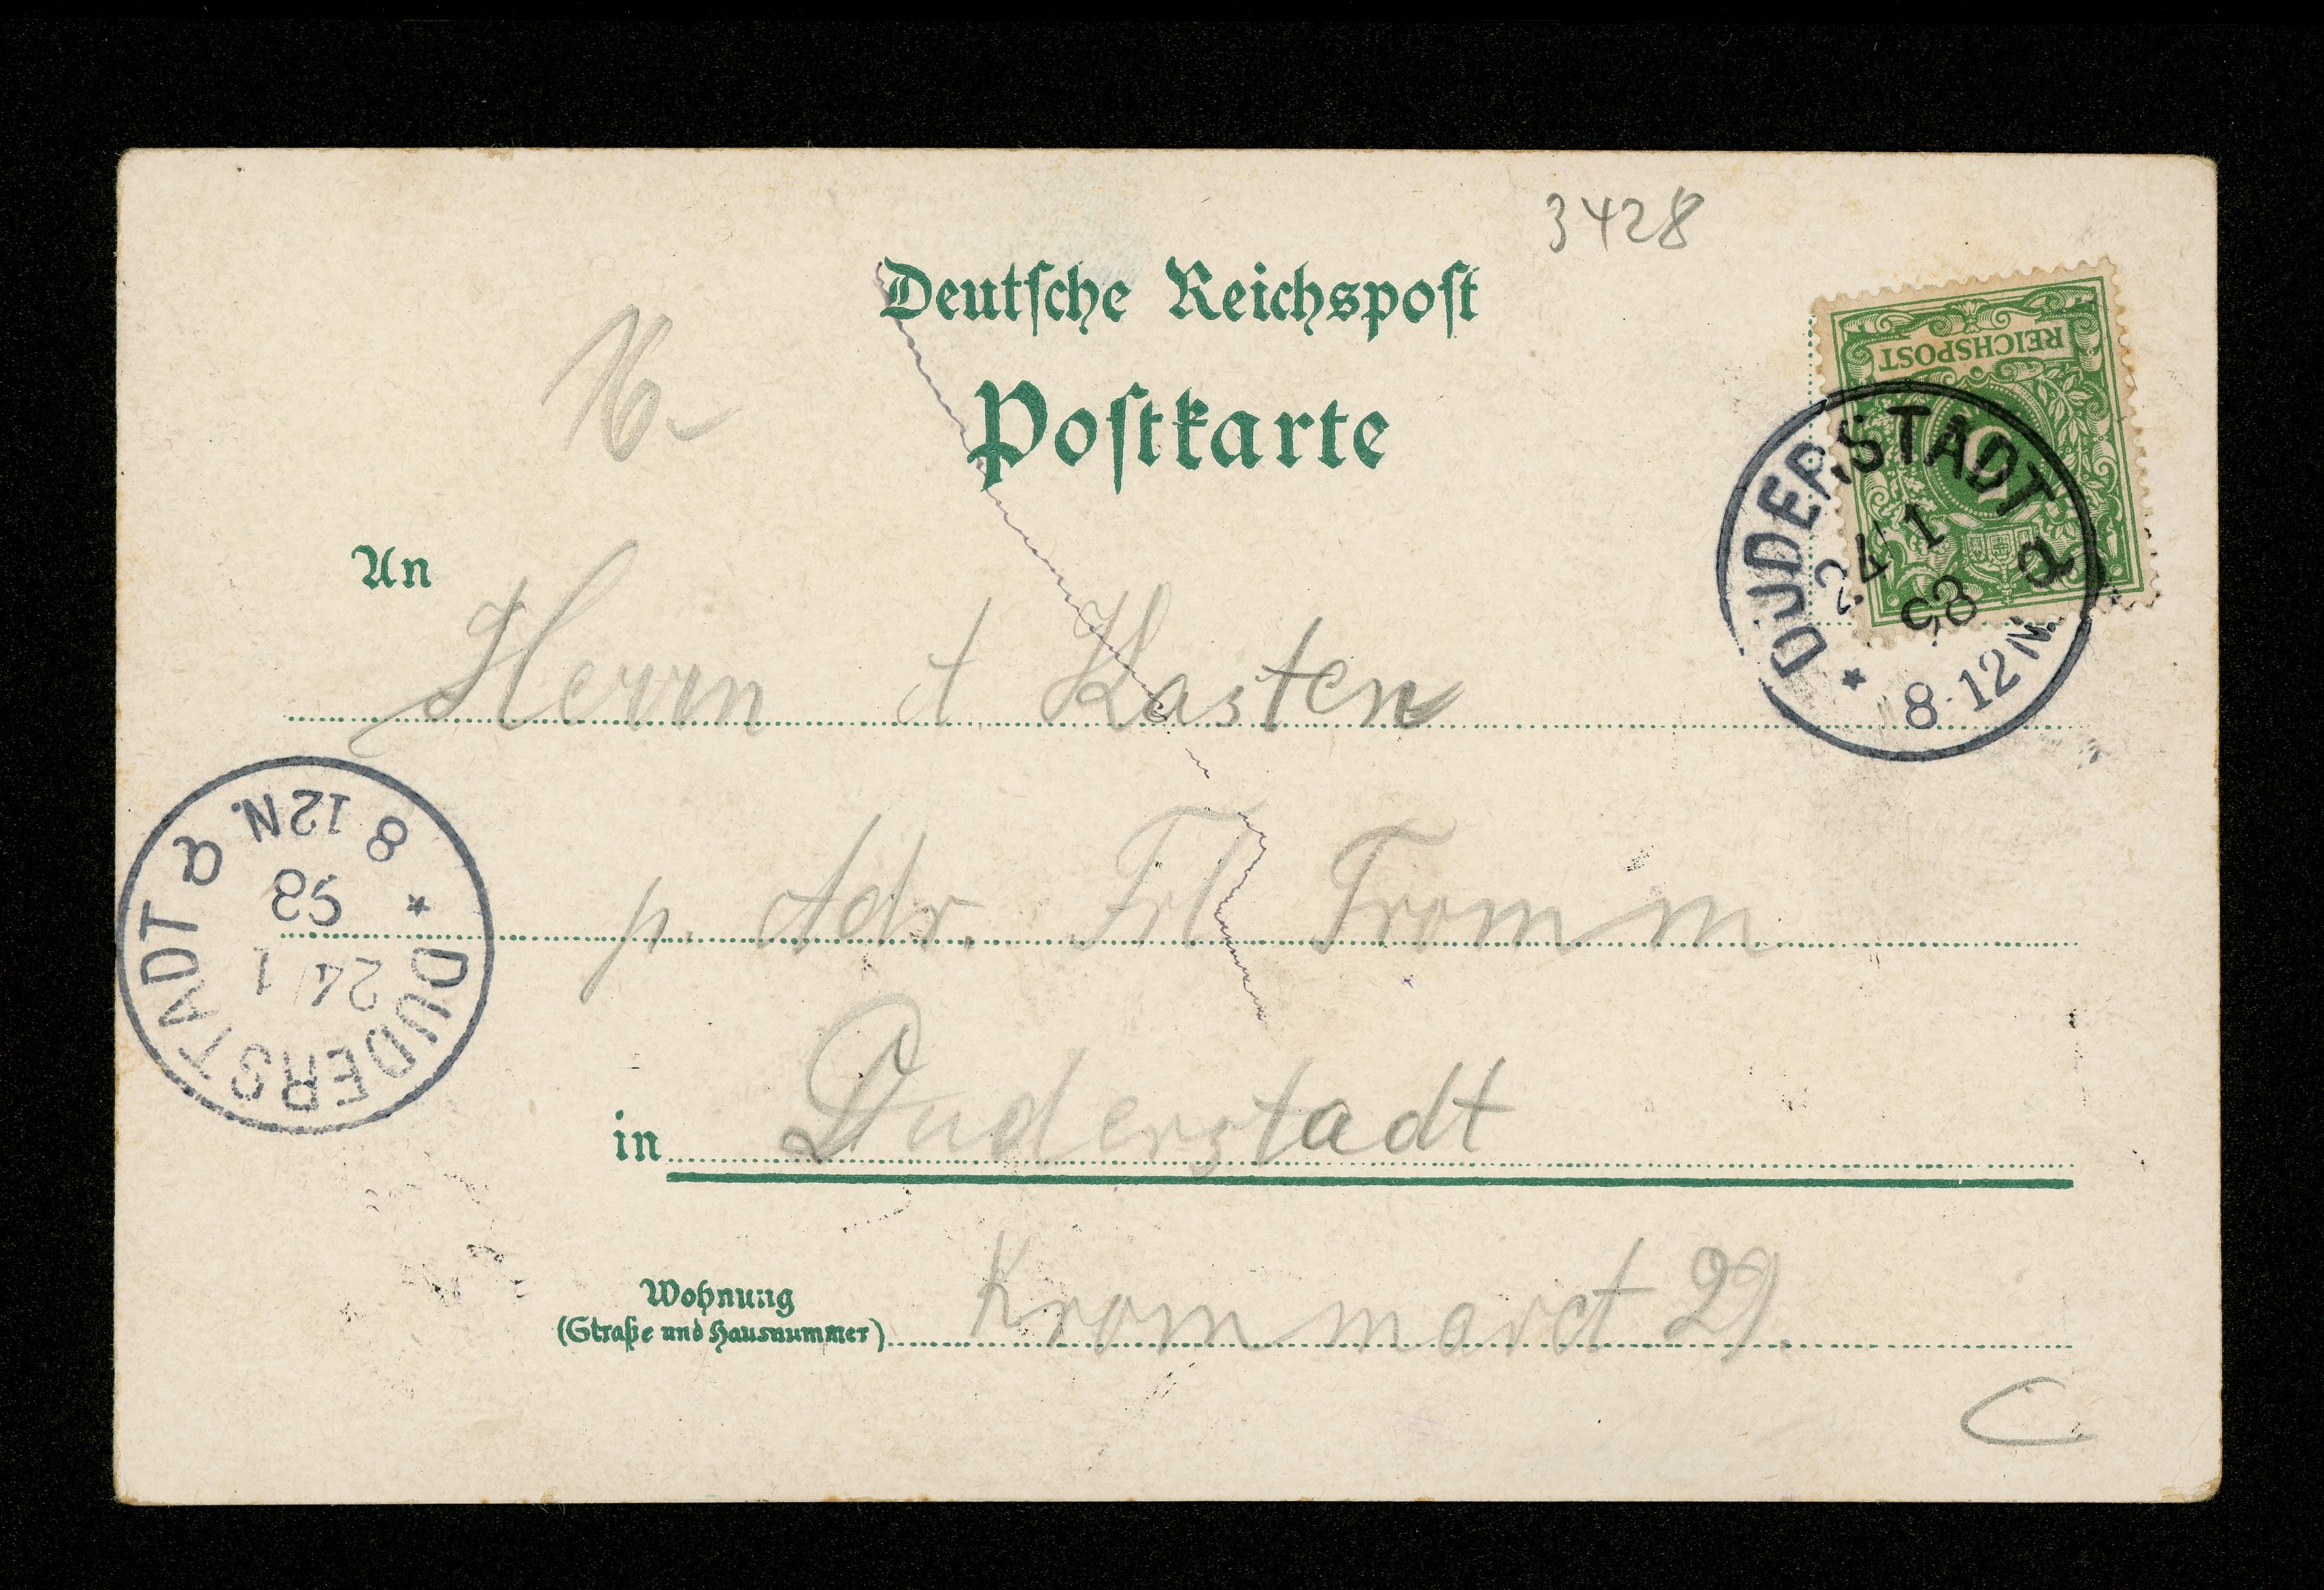 3428
Deutsche Reichspost
Postkarte
16-
REICHSPOST
5
DUDERSTADT a
24/1
98
8-12N.
An
Herrn A Kasten
DUDERSTADT a
24/1
98
8-12N.
p. Adr. Frl Fromm
in Duderstadt
Wohnung
(Straße und Hausnummer)
Krommarct 29.
C